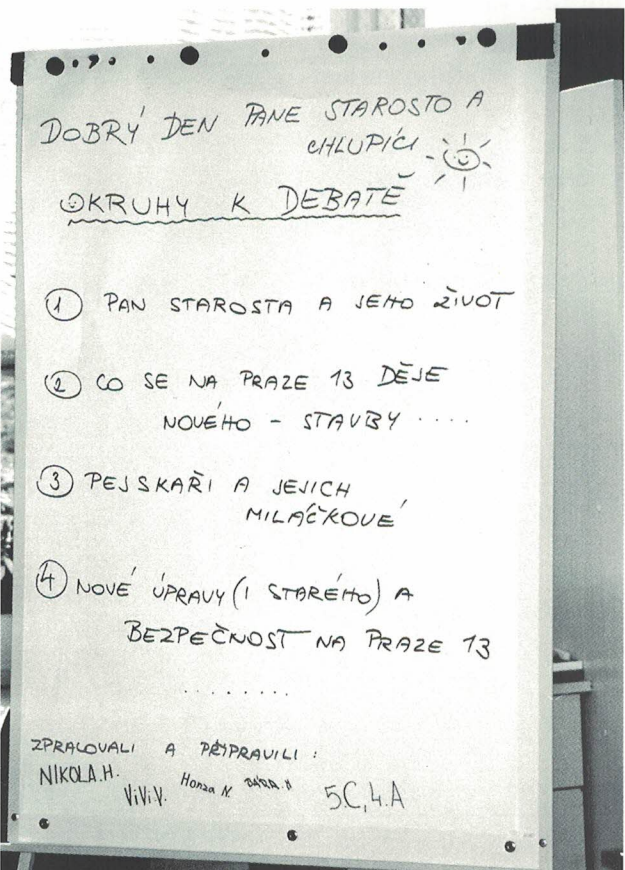 DOBRÝ DEN PANE STAROSTO A
CHLUPÍCI
OKRUHY K DEBATĚ
1 PAN STAROSTA A JEHO ŽIVOT
2 CO SE NA PRAZE 13 DĚJE
NOVÉHO - STAVBY ....
3 PEJSKAŘI A JEJICH
MILÁČKOVÉ
4 NOVÉ ÚPRAVY (I STARÉHO) A
BEZPEČNOST NA PRAZE 13
........
ZPRACOVALI A PŘIPRAVILI :
NIKOLA.H.
ViVi.V. Honza N. BÁRA.H 5.C,4.A